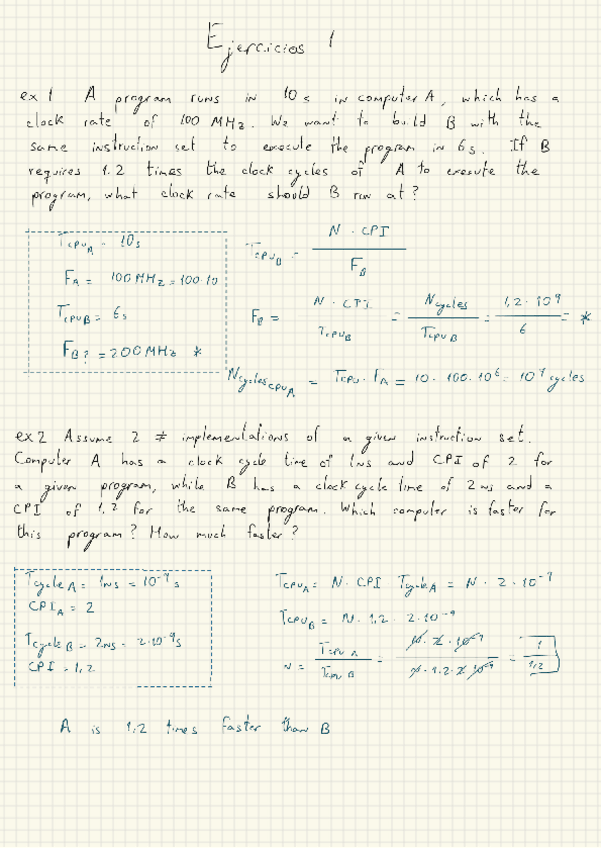 Ejercicios 1
ex 1 A program runs in 10 s in computer A, which has a
clock rate of 100 MHz. We want to build B with the
same instruction set to execute the program in 6 s. If B
requires 1.2 times the clock cycles of A to execute the
program, what clock rate should B run at?
T_CPU_A = 10s
F_A = 100 MHz = 100·10
T_CPU_B = 6s
F_B? = 200 MHz *
T_CPU_B = N · CPI / F_B
F_B = N · CPI / T_CPU_B = N cycles / T_CPU_B = 1,2 · 10^9 / 6 = *
N cycles_CPU_A = T_CPU · F_A = 10 · 100 · 10^6 = 10^9 cycles
ex 2 Assume 2 ≠ implementations of a given instruction set.
Computer A has a clock cycle time of 1ns and CPI of 2 for
a given program, while B has a clock cycle time of 2 ns and a
CPI of 1,2 for the same program. Which computer is faster for
this program? How much faster?
T_cycle_A = 1ns = 10^-9 s
CPI_A = 2
T_cycle_B = 2ns = 2·10^-9 s
CPI = 1,2
T_CPU_A = N · CPI T_cycle_A = N · 2 · 10^-9
T_CPU_B = N · 1,2 · 2·10^-9
n = T_CPU_A / T_CPU_B = N · 2 · 10^-9 / N · 1,2 · 2 · 10^-9 = 1 / 1,2
A is 1,2 times faster than B